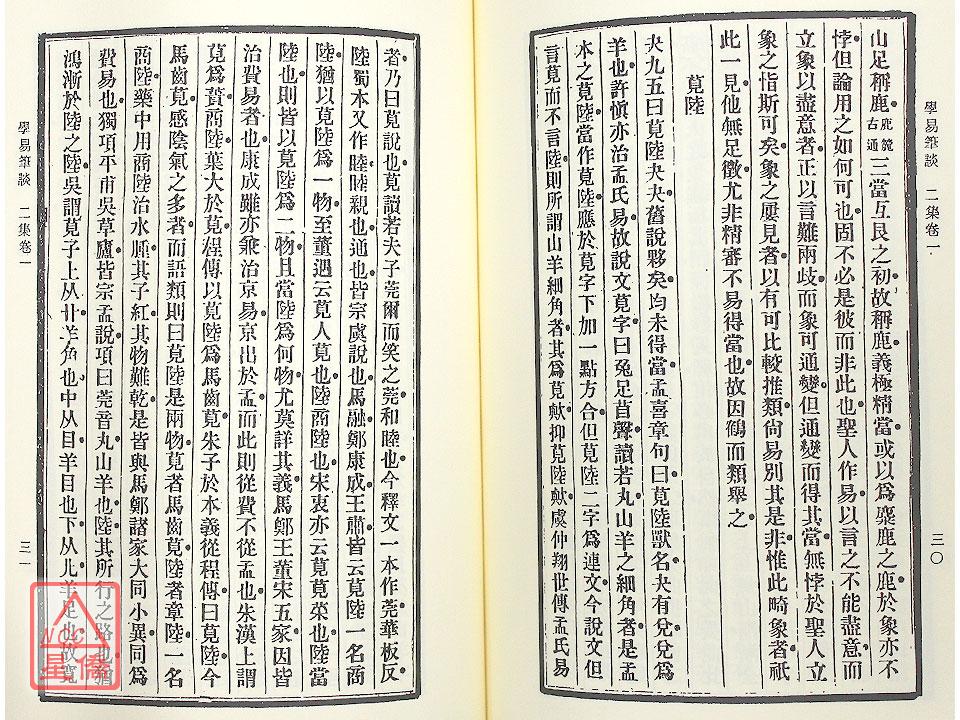 學易筆談 二集卷一
三〇
山足稱鹿鹿麓古通三當互艮之初故稱鹿義極精當或以為麋鹿之鹿於象亦不
悖但論用之如何可也固不必是彼而非此也聖人作易以言之不能盡意而
立象以盡意者正以言難兩歧而象可通變但通變而得其當無悖於聖人立
象之恉斯可矣象之屢見者以有可比較推類尙易別其是非惟此畸象者祇
此一見他無足徵尤非精審不易得當也故因鶴而類舉之
莧陸
夬九五曰莧陸夬夬舊說夥矣均未得當孟喜章句曰莧陸獸名夬有兌兌為
羊也許愼亦治孟氏易故說文莧字曰兔足苜聲讀若丸山羊之細角者是孟
本之莧陸當作莧陸應於莧字下加一點方合但莧陸二字為連文今說文但
言莧而不言陸則所謂山羊細角者其為莧歟抑莧陸歟虞仲翔世傳孟氏易
者乃曰莧說也莧讀若夫子莞爾而笑之莞和睦也今釋文一本作莞華板反
陸蜀本又作睦睦親也通也皆宗虞說也馬融鄭康成王肅皆云莧陸一名商
陸猶以莧陸為一物至董遇云莧人莧也陸商陸也宋衷亦云莧莧菜也陸當
陸也則皆以莧陸為二物且當陸為何物尤莫詳其義馬鄭王董宋五家因皆
治費易者也康成雖亦兼治京易京出於孟而此則從費不從孟也朱漢上謂
莧為蕢商陸葉大於莧程傳以莧陸為馬齒莧朱子於本義從程傳曰莧陸今
馬齒莧感陰氣之多者而語類則曰莧陸是兩物莧者馬齒莧陸者章陸一名
商陸藥中用商陸治水腫其子紅其物難乾是皆與馬鄭諸家大同小異同為
費易也獨項平甫吳草廬皆宗孟說項曰莞音丸山羊也陸其所行之路也猶
鴻漸於陸之陸吳謂莧子上从卝羊角也中从目羊目也下从儿羊足也故寬
學易筆談 二集卷一
三一
NCC
星僑